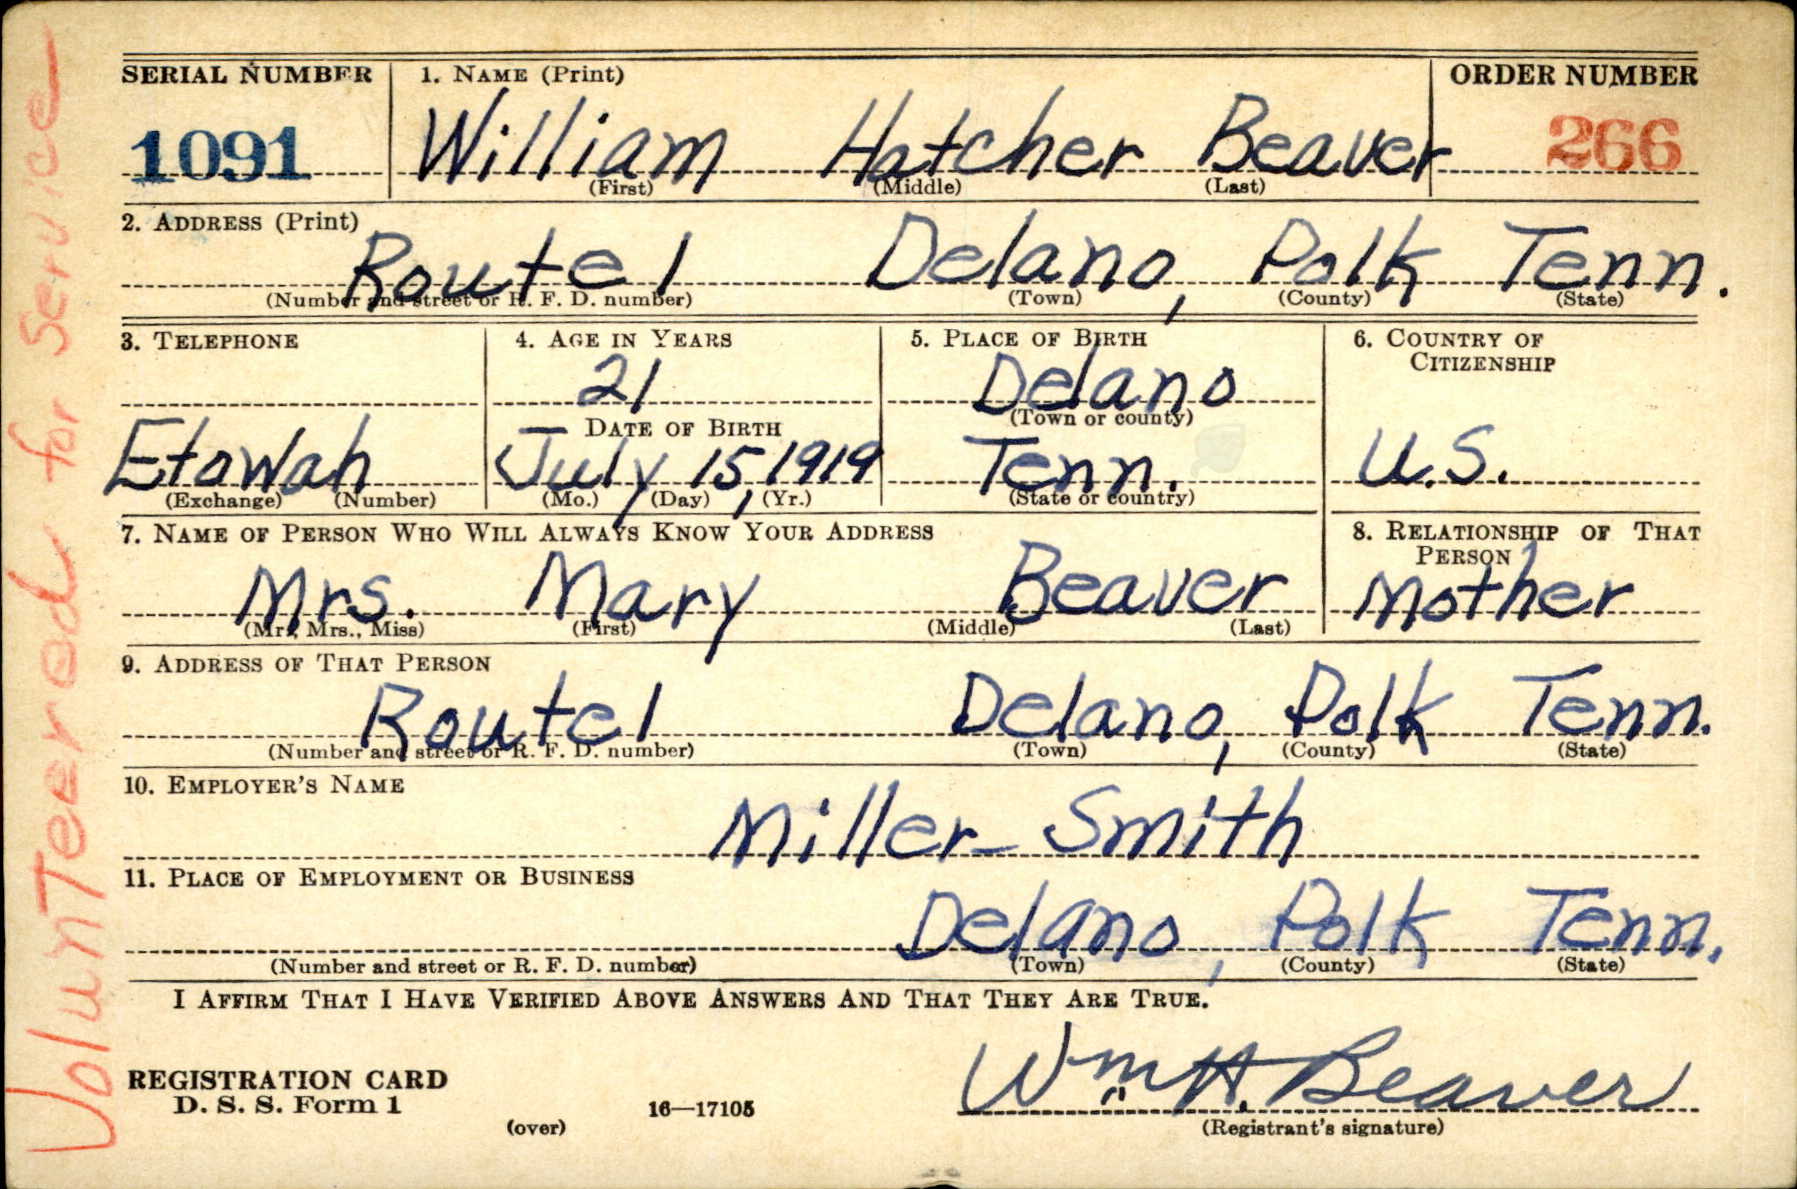 SERIAL NUMBER 1. NAME (Print) ORDER NUMBER
1091 William Hatcher Beaver 266
(First) (Middle) (Last)
2. ADDRESS (Print)
Route 1 Delano, Polk Tenn.
(Number and street or R. F. D. number) (Town) (County) (State)
3. TELEPHONE 4. AGE IN YEARS 5. PLACE OF BIRTH 6. COUNTRY OF
CITIZENSHIP
21 Delano
(Town or county)
DATE OF BIRTH
Etowah July 15, 1919 Tenn. U.S.
(Exchange) (Number) (Mo.) (Day) (Yr.) (State or country)
7. NAME OF PERSON WHO WILL ALWAYS KNOW YOUR ADDRESS 8. RELATIONSHIP OF THAT
PERSON
Mrs. Mary Beaver Mother
(Mr., Mrs., Miss) (First) (Middle) (Last)
9. ADDRESS OF THAT PERSON
Route 1 Delano, Polk Tenn.
(Number and street or R. F. D. number) (Town) (County) (State)
10. EMPLOYER'S NAME
Miller-Smith
11. PLACE OF EMPLOYMENT OR BUSINESS
Delano, Polk Tenn.
(Number and street or R. F. D. number) (Town) (County) (State)
I AFFIRM THAT I HAVE VERIFIED ABOVE ANSWERS AND THAT THEY ARE TRUE.
REGISTRATION CARD
D. S. S. Form 1
(over)
16—17105
Wm. H. Beaver
(Registrant's signature)
VolunTeered for Service